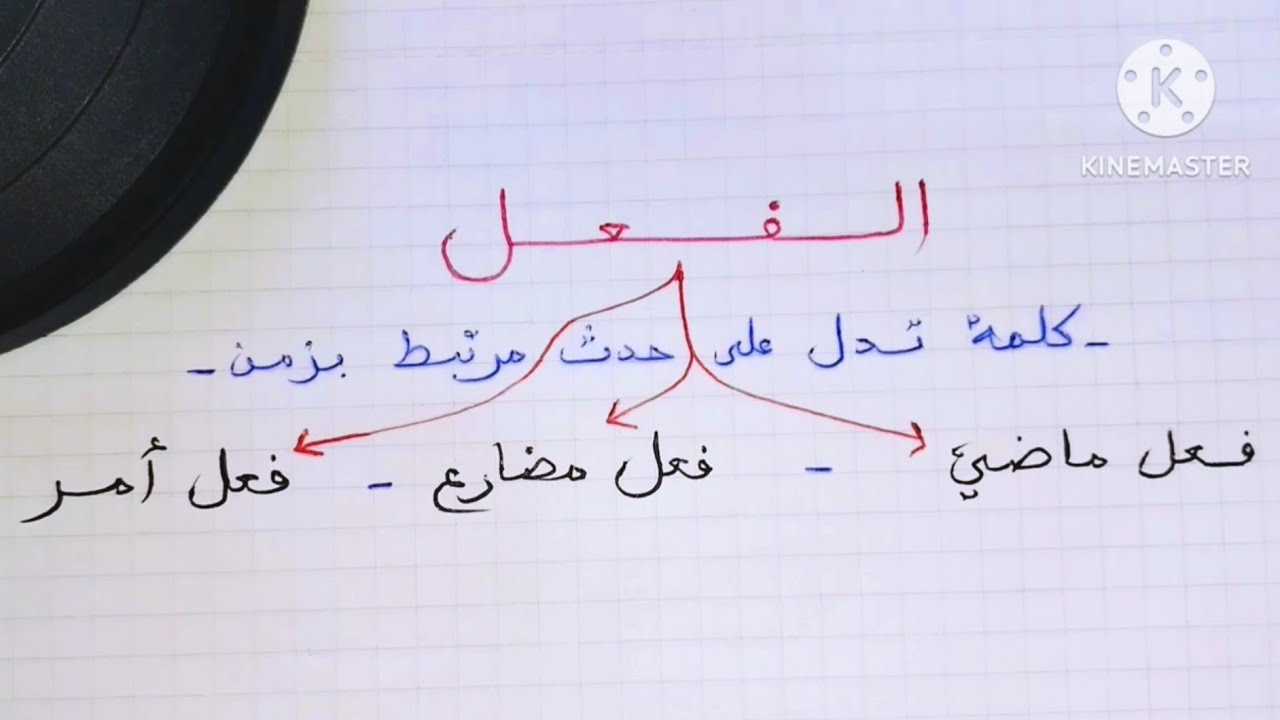 KINEMASTER
الفعل
- كلمة تدل على حدث مرتبط بزمن -
فعل ماضي - فعل مضارع - فعل أمر